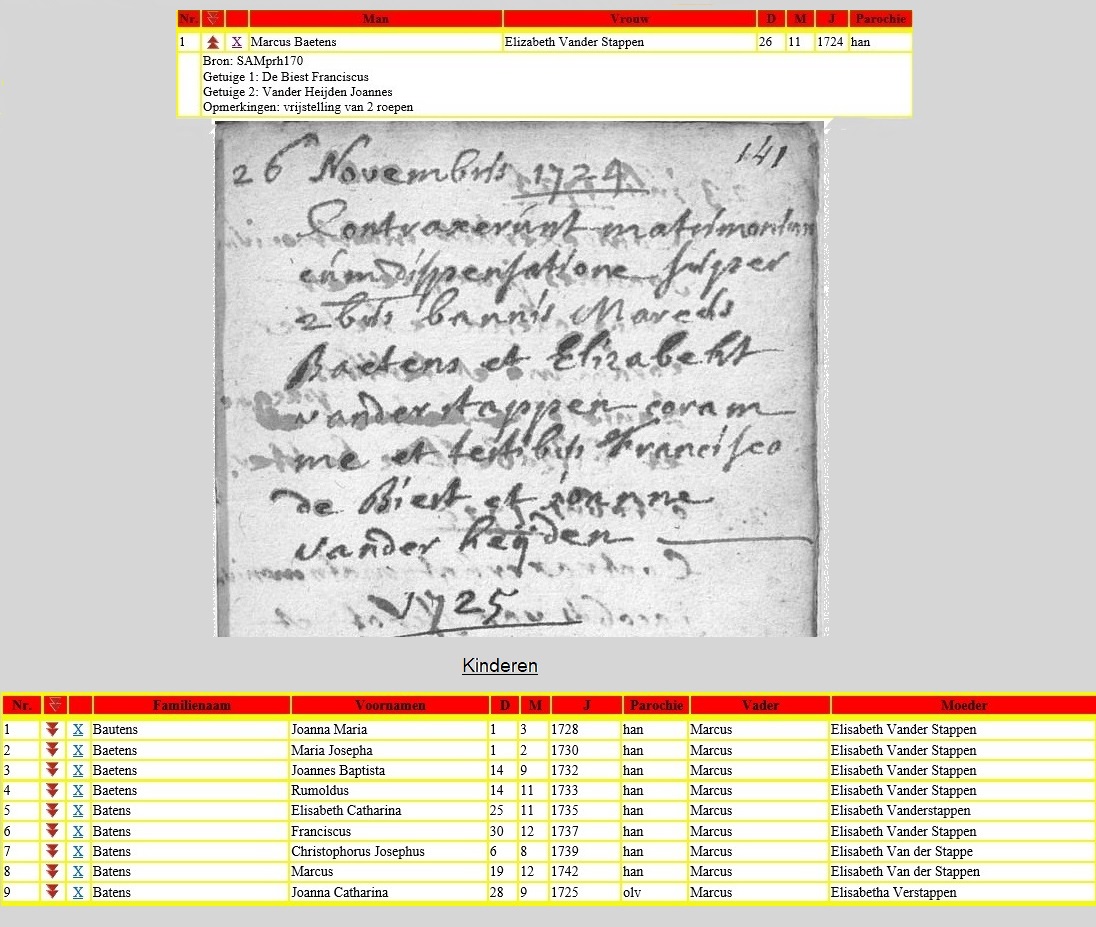 Nr. Man Vrouw D M J Parochie
1 X Marcus Baetens Elizabeth Vander Stappen 26 11 1724 han
Bron: SAMprh170
Getuige 1: De Biest Franciscus
Getuige 2: Vander Heijden Joannes
Opmerkingen: vrijstelling van 2 roepen
141
26 Novembris 1724
Contraxerunt matrimonium
cum dispensatione super
2bus bannis Marcus
Baetens et Elizabeht
vander stappen coram
me et testibus Francisco
de Biest et joanne
vander heÿden
1725
Kinderen
Nr. Familienaam Voornamen D M J Parochie Vader Moeder
1 X Bautens Joanna Maria 1 3 1728 han Marcus Elisabeth Vander Stappen
2 X Baetens Maria Josepha 1 2 1730 han Marcus Elisabeth Vander Stappen
3 X Baetens Joannes Baptista 14 9 1732 han Marcus Elisabeth Vander Stappen
4 X Baetens Rumoldus 14 11 1733 han Marcus Elisabeth Vander Stappen
5 X Batens Elisabeth Catharina 25 11 1735 han Marcus Elisabeth Vanderstappen
6 X Batens Franciscus 30 12 1737 han Marcus Elisabeth Vander Stappen
7 X Batens Christophorus Josephus 6 8 1739 han Marcus Elisabeth Van der Stappe
8 X Batens Marcus 19 12 1742 han Marcus Elisabeth Van der Stappen
9 X Batens Joanna Catharina 28 9 1725 olv Marcus Elisabetha Verstappen